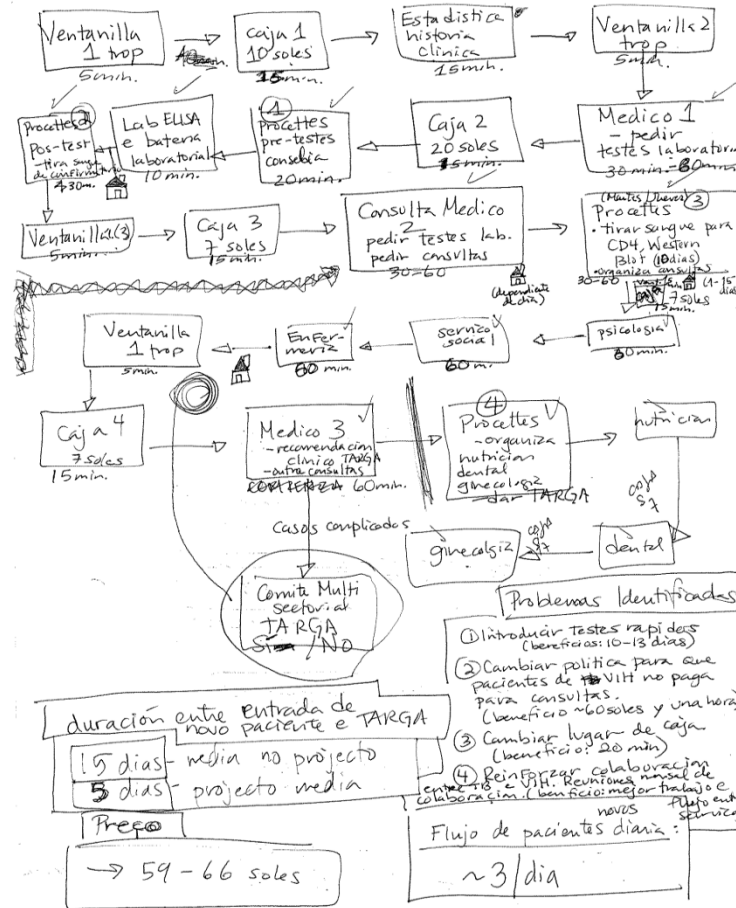 Ventanilla
1 trop
5 min.
Caja 1
10 soles
15 min.
Estadistica
historia
clinica
15 min.
Ventanilla 2
trop
5 min.
Medico 1
- pedir
testes laboratorial
30 min. - 60 min
Caja 2
20 soles
15 min.
1
Procettes
pre-testes
20 min.
Lab ELISA
e bateria
laboratorial
10 min.
Procettes 2
Pos-test
- tira sangre
de confirmatorio
30 m.
Ventanilla (3)
5 min.
Caja 3
7 soles
15 min.
Consulta Medico
2
pedir testes lab.
pedir consultas
30-60
(dependiente
de dia)
(Martes/Jueves) 3
Procettes
• tirar sangue para
CD4, Western
Blot (10 dias)
• organiza consultas
30-60
(1-15
dias)
7 soles
15 min.
psicologia
60 min.
servico
social
60 m.
Enfer-
meria
60 min.
Ventanilla
1 trop
5 min.
Caja 4
7 soles
15 min.
Medico 3
- recomendacion
clinico TARGA
- outra consultas
60 min.
4
Procettes
- organiza
nutricion
dental
ginecologia
- dar TARGA
nutrician
caja
S7
dental
caja
S7
ginecolgia
Casos complicados
Comite Multi
sectorial
TARGA
Si / No
duración entre entrada de
novo paciente e TARGA
15 dias - media no projecto
5 dias - projecto media
Preço
→ 59 - 66 soles
Problemas Identificadas
① Introducir testes rapidos
(beneficios: 10-13 dias)
② Cambiar politica para que
pacientes de VIH no paga
para consultas.
(beneficio ~60 soles y una hora)
③ Cambiar lugar de caja
(beneficio: 20 min)
④ Reinforzar colaboracion
entre TB e VIH. Reuniones mensal de
colaboracion. (benficio: mejor trabajo e
flujo entre
servicos
novos
Flujo de pacientes diaria:
~3/dia